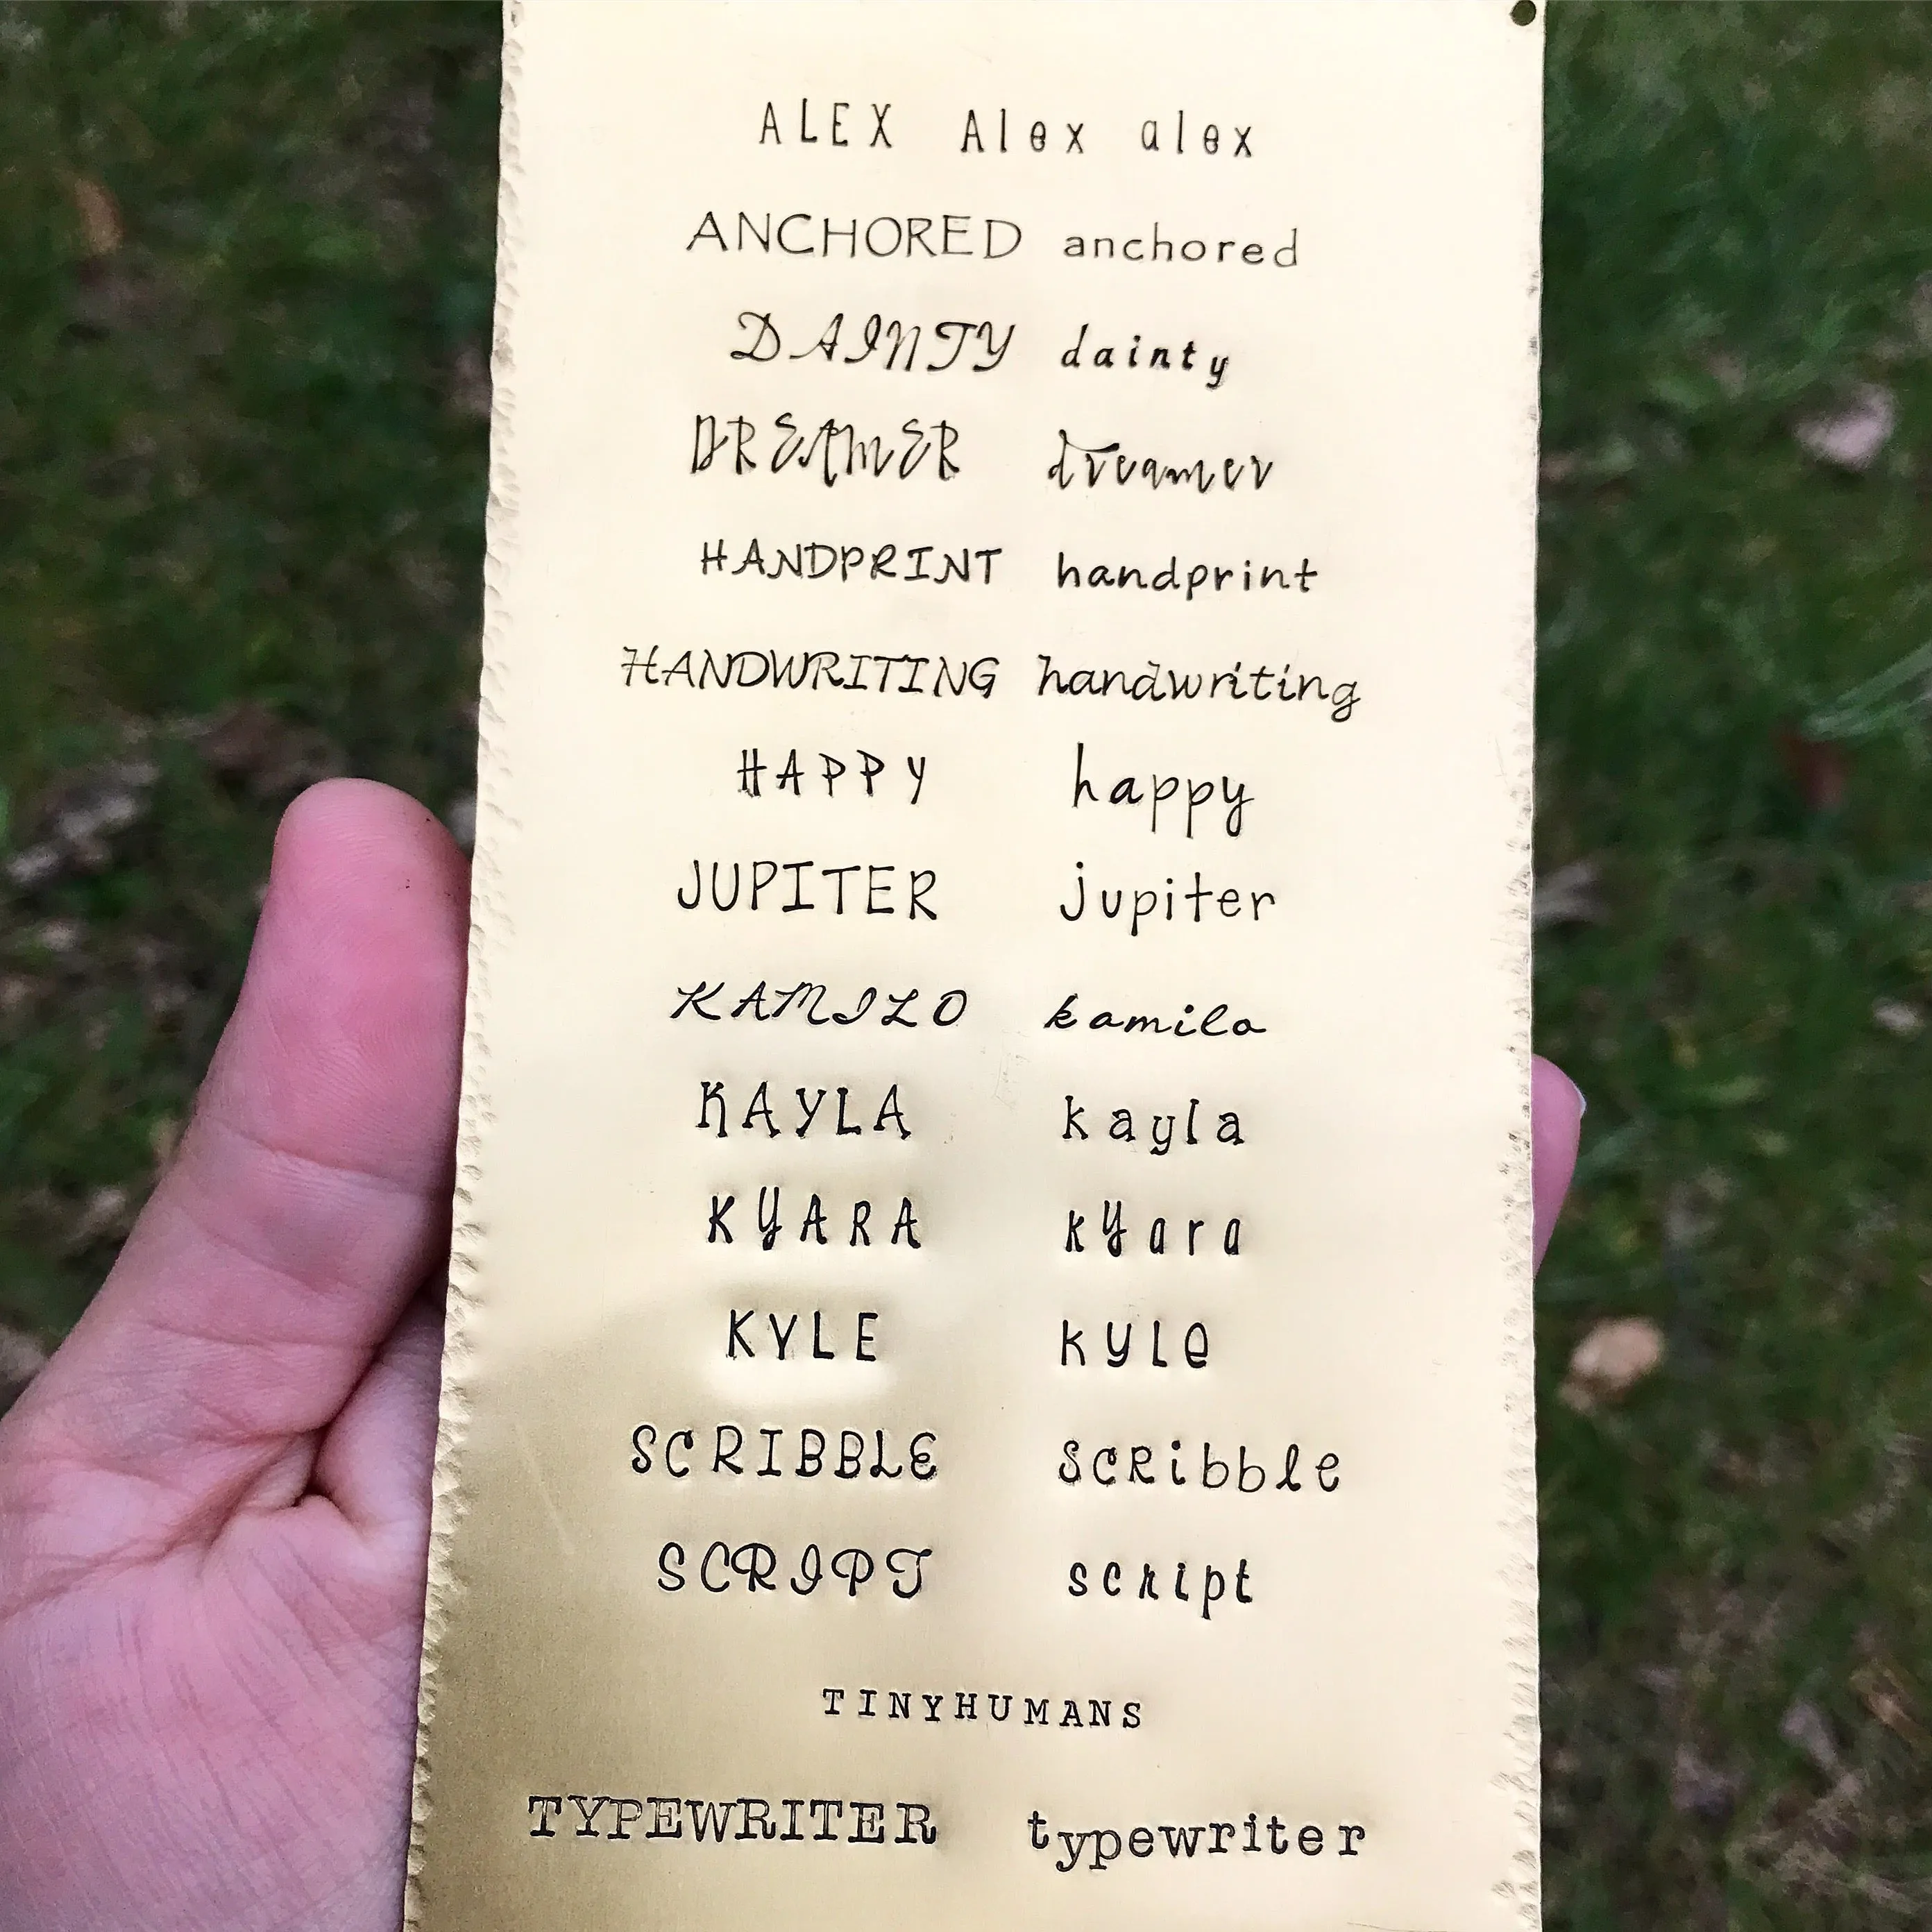 ALEX Alex alex
ANCHORED anchored
DAINTY dainty
DREAMER dreamer
HANDPRINT handprint
HANDWRITING handwriting
HAPPY happy
JUPITER jupiter
KAMILO kamilo
KAYLA kayla
KYARA kyara
KYLE kyle
SCRIBBLE scribble
SCRIPT script
TINYHUMANS
TYPEWRITER typewriter